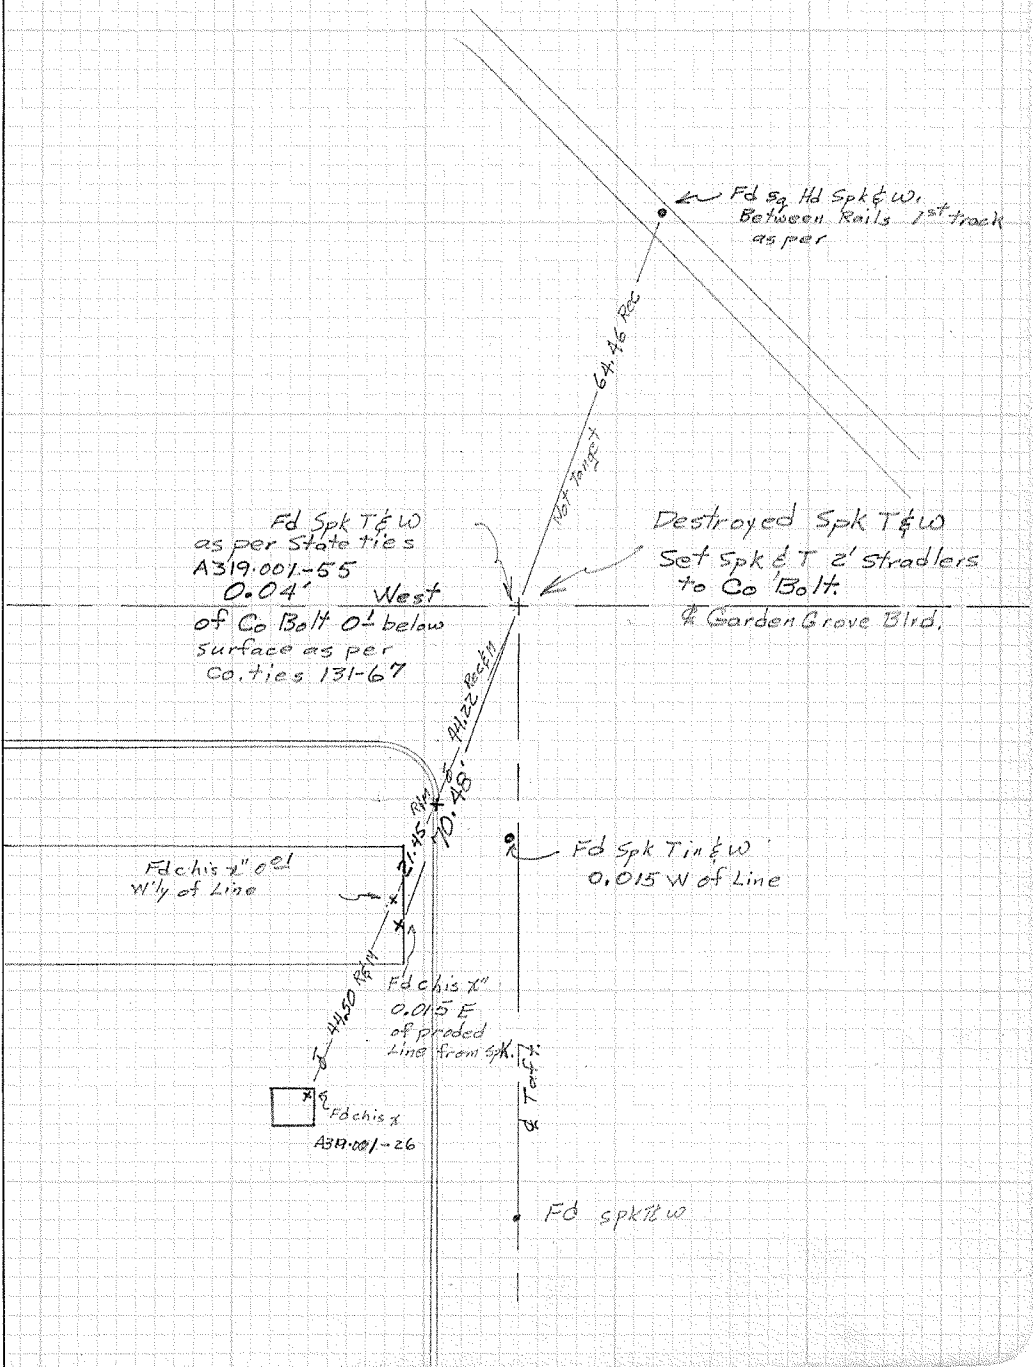 Fd Sq Hd Spk & W.
Between Rails 1st track
as per
64.46 Rec
Not Tangt
Fd Spk T & W
as per State ties
A319.001-55
0.04' West
of Co Bolt 0.1 below
surface as per
Co. ties 131-67
Destroyed Spk T & W
Set Spk & T 2' Stradlers
to Co Bolt.
℄ Garden Grove Blvd.
44.22 Rec & M
70.48'
21.45 R & M
Fd Spk Tin & W
0.015 W of Line
Fd chis "x" 0.01
W'ly of Line
Fd chis "x"
0.015 E
of proded
Line from spk.
44.50 R & M
℄ Taft
Fd chis x
A319.001-26
Fd spk T & W